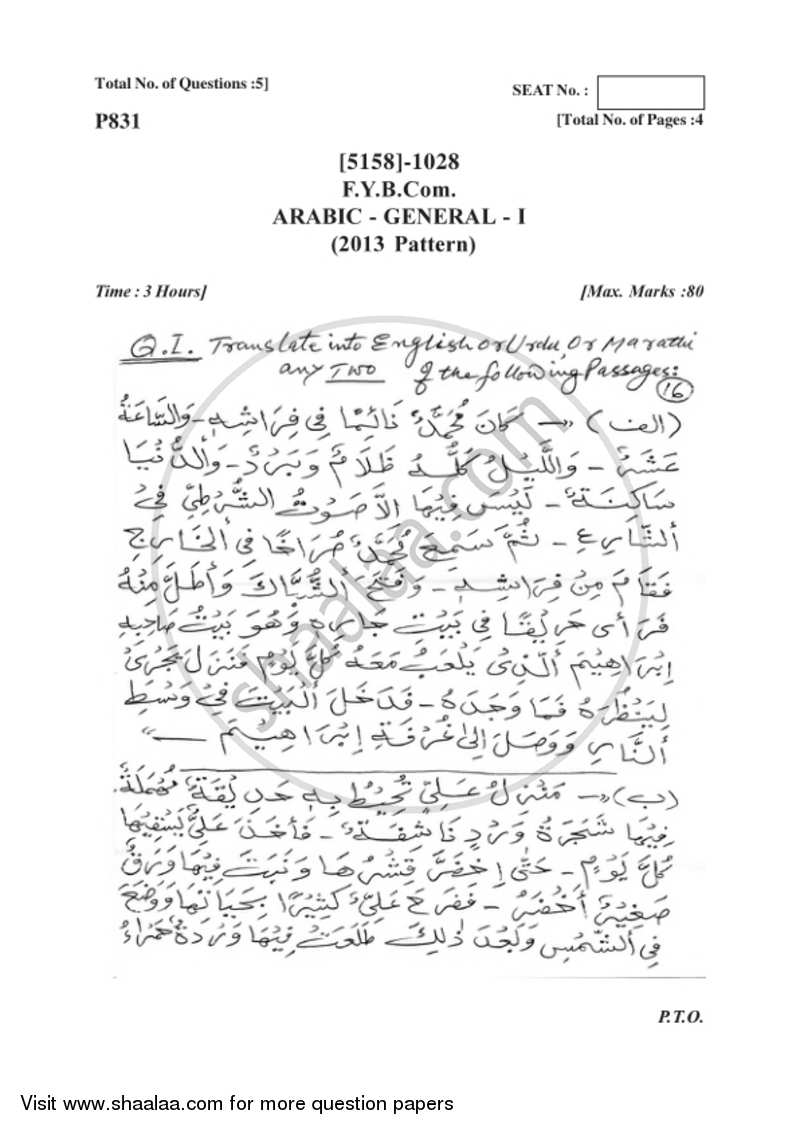 Total No. of Questions :5]
SEAT No. :
P831
[Total No. of Pages :4
[5158]-1028
F.Y.B.Com.
ARABIC - GENERAL - I
(2013 Pattern)
Time : 3 Hours]
[Max. Marks :80
Q.I. Translate into English or Urdu, Or Marathi
any TWO of the following Passages:
16
(الف) كَانَ مُحَمَّدٌ نَائِمًا فِي فِرَاشِهِ - وَالسَّاعَةُ
عَشَرٌ - وَاللَّيْلُ كُلُّهُ ظَلَامٌ وَبَرْدٌ - وَالدُّنْيَا
سَاكِنَةٌ - لَيْسَ فِيهَا إِلَّا صَوْتُ الشُّرْطِيِّ فِي
الشَّارِعِ - ثُمَّ سَمِعَ مُحَمَّدٌ صُرَاخًا فِي الْخَارِجِ
فَقَامَ مِنْ فِرَاشِهِ - وَفَتَحَ الشُّبَّاكَ وَأَطَلَّ مِنْهُ
فَرَأَى حَرِيقًا فِي بَيْتِ جَارِهِ وَهُوَ بَيْتُ صَاحِبِهِ
إِبْرَاهِيْمَ الَّذِىْ يَلْعَبُ مَعَهُ كُلَّ يَوْمٍ فَنَزَلَ يَجْرِىْ
لِيَنْظُرَهُ فَمَا وَجَدَهُ - فَدَخَلَ الْبَيْتَ فِي وَسْطِ
النَّارِ وَوَصَلَ إِلىٰ غُرْفَةِ إِبْرَاهِيْمَ
(ب) مَنْزِلُ عَلِيٍّ تُحِيْطُ بِهِ حَدِيْقَةٌ مُهْمَلَةٌ.
فِيْهَا شَجَرَةُ وَرْدٍ نَاشِفَةٌ - فَأَخَذَ عَلِيٌّ يَسْقِيْهَا
كُلَّ يَوْمٍ - حَتّٰى إِخْضَرَّ قِشْرُهَا وَنَبَتَ فِيْهَا وَرَقٌ
صَغِيْرٌ أَخْضَرُ - فَفَرِحَ عَلِيٌّ كَثِيْرًا بِحَيَاتِهَا وَوَضَعَ
فِي الشَّمْسِ وَبَعْدَ ذٰلِكَ طَلَعَتْ فِيْهَا وَرْدَةٌ حَمْرَاءُ
P.T.O.
shaalaa.com
Visit www.shaalaa.com for more question papers